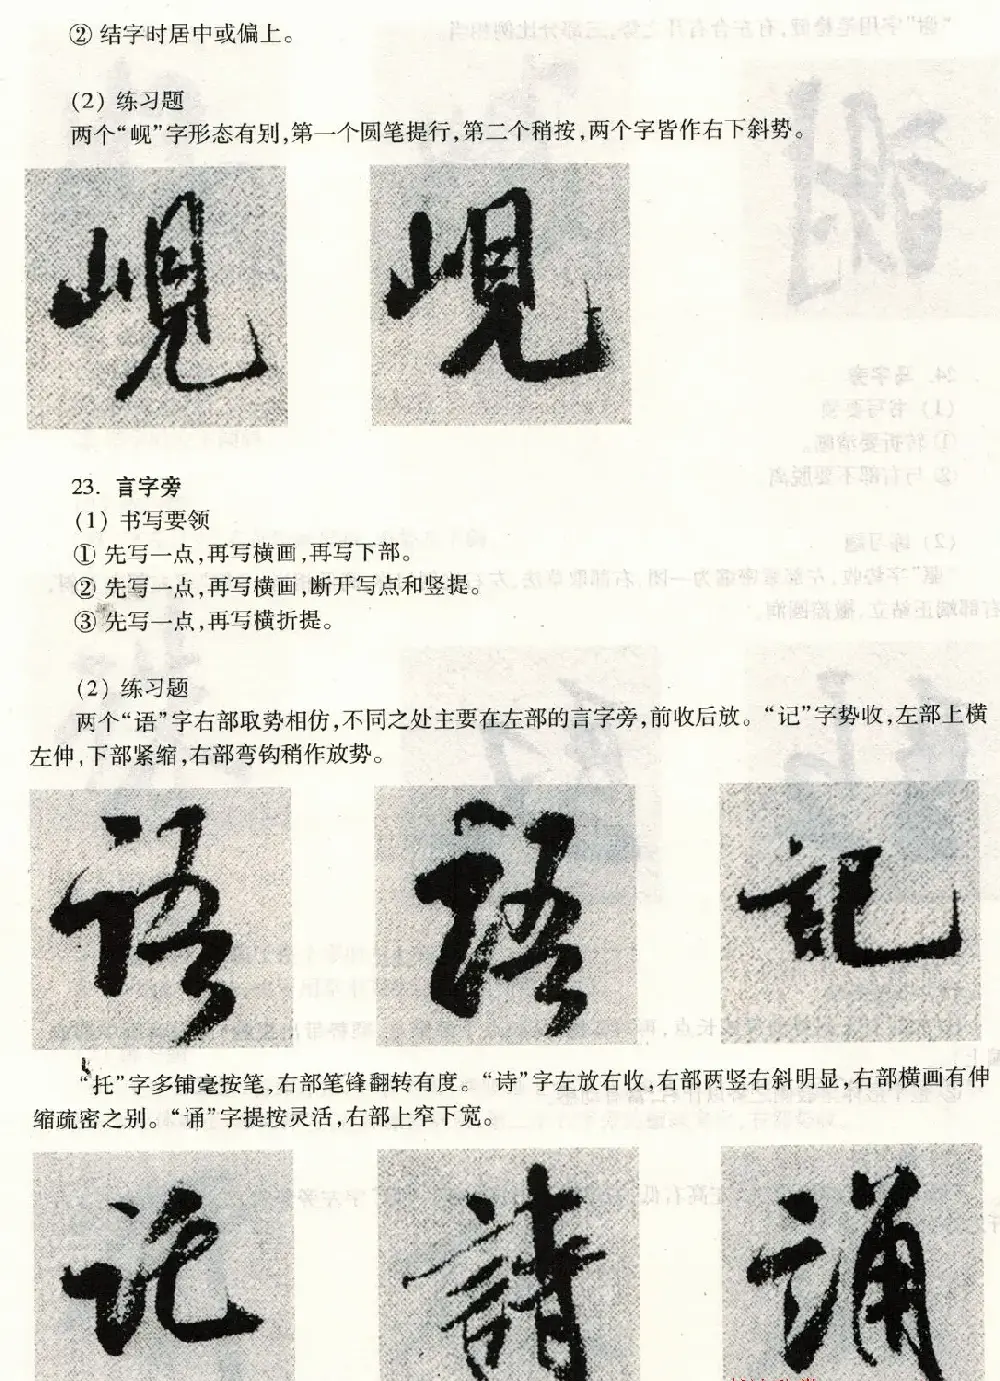 ② 结字时居中或偏上。
(2) 练习题
两个“岘”字形态有别,第一个圆笔提行,第二个稍按,两个字皆作右下斜势。
峴 峴
23. 言字旁
(1) 书写要领
① 先写一点,再写横画,再写下部。
② 先写一点,再写横画,断开写点和竖提。
③ 先写一点,再写横折提。
(2) 练习题
两个“语”字右部取势相仿,不同之处主要在左部的言字旁,前收后放。“记”字势收,左部上横
左伸,下部紧缩,右部弯钩稍作放势。
語 語 記
“托”字多铺毫按笔,右部笔锋翻转有度。“诗”字左放右收,右部两竖右斜明显,右部横画有伸
缩疏密之别。“诵”字提按灵活,右部上窄下宽。
託 誦